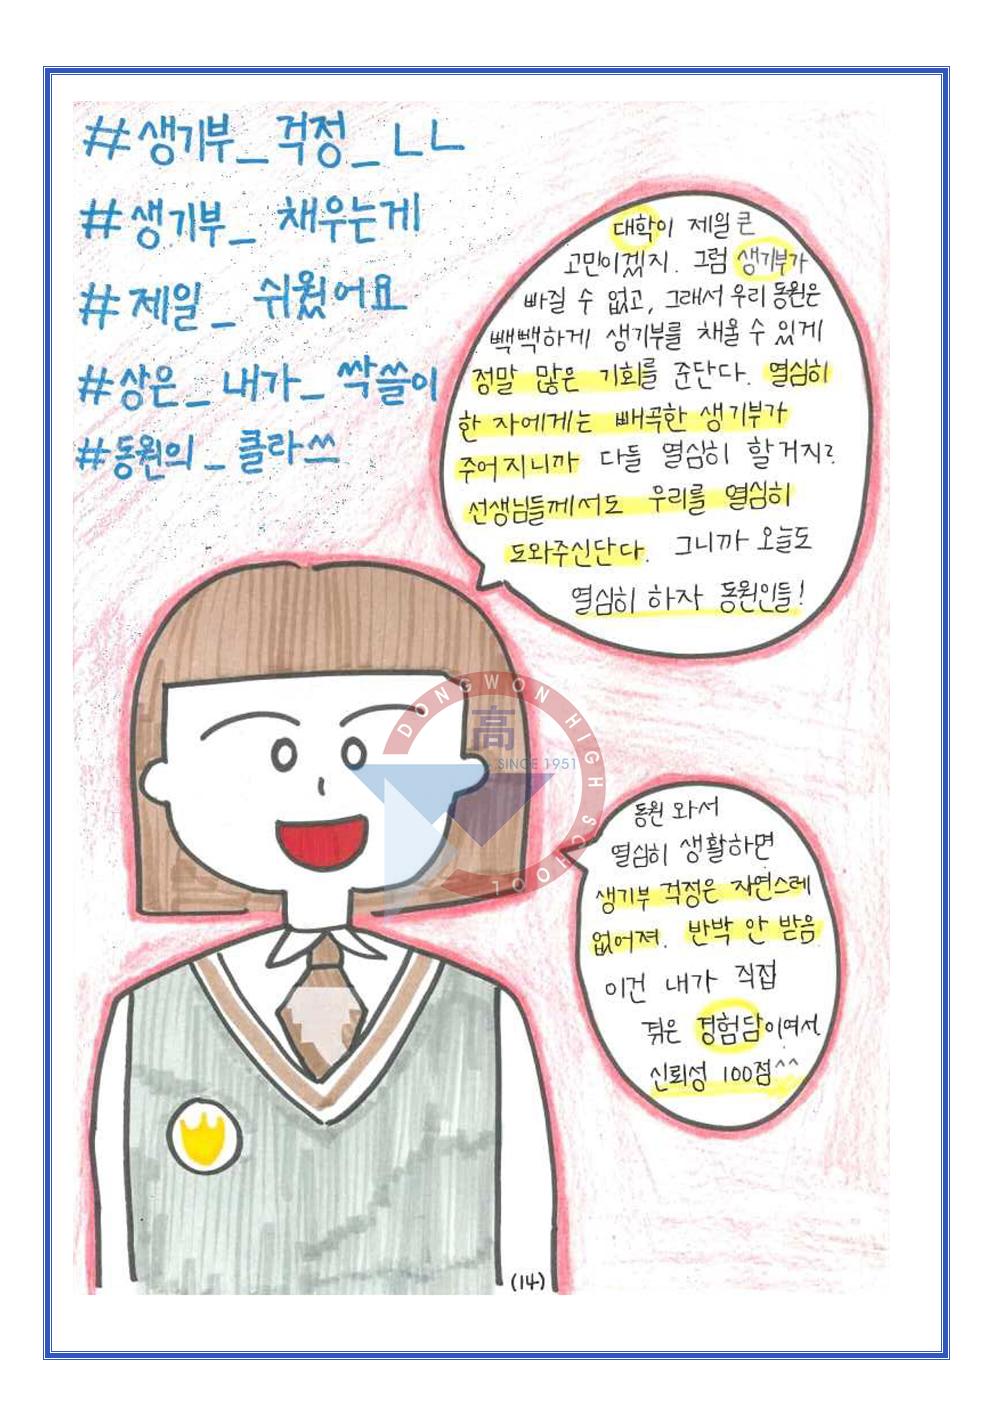 #생기부_ 걱정_ㄴㄴ
#생기부_ 채우는게
#제일_ 쉬웠어요
#상은_ 내가_ 싹쓸이
#동원의_클라쓰
대학이 제일 큰
고민이겠지. 그럼 생기부가
빠질 수 없고, 그래서 우리 동원은
빽빽하게 생기부를 채울 수 있게
정말 많은 기회를 준단다. 열심히
한 자에게는 빼곡한 생기부가
주어지니까 다들 열심히 할거지?
선생님들께서도 우리를 열심히
도와주신단다. 그니까 오늘도
열심히 하자 동원인들!
DONGWON HIGH SCHOOL
高
SINCE 1951
동원 와서
열심히 생활하면
생기부 걱정은 자연스레
없어져. 반박 안 받음
이건 내가 직접
겪은 경험담이여서
신뢰성 100점^^
(14)